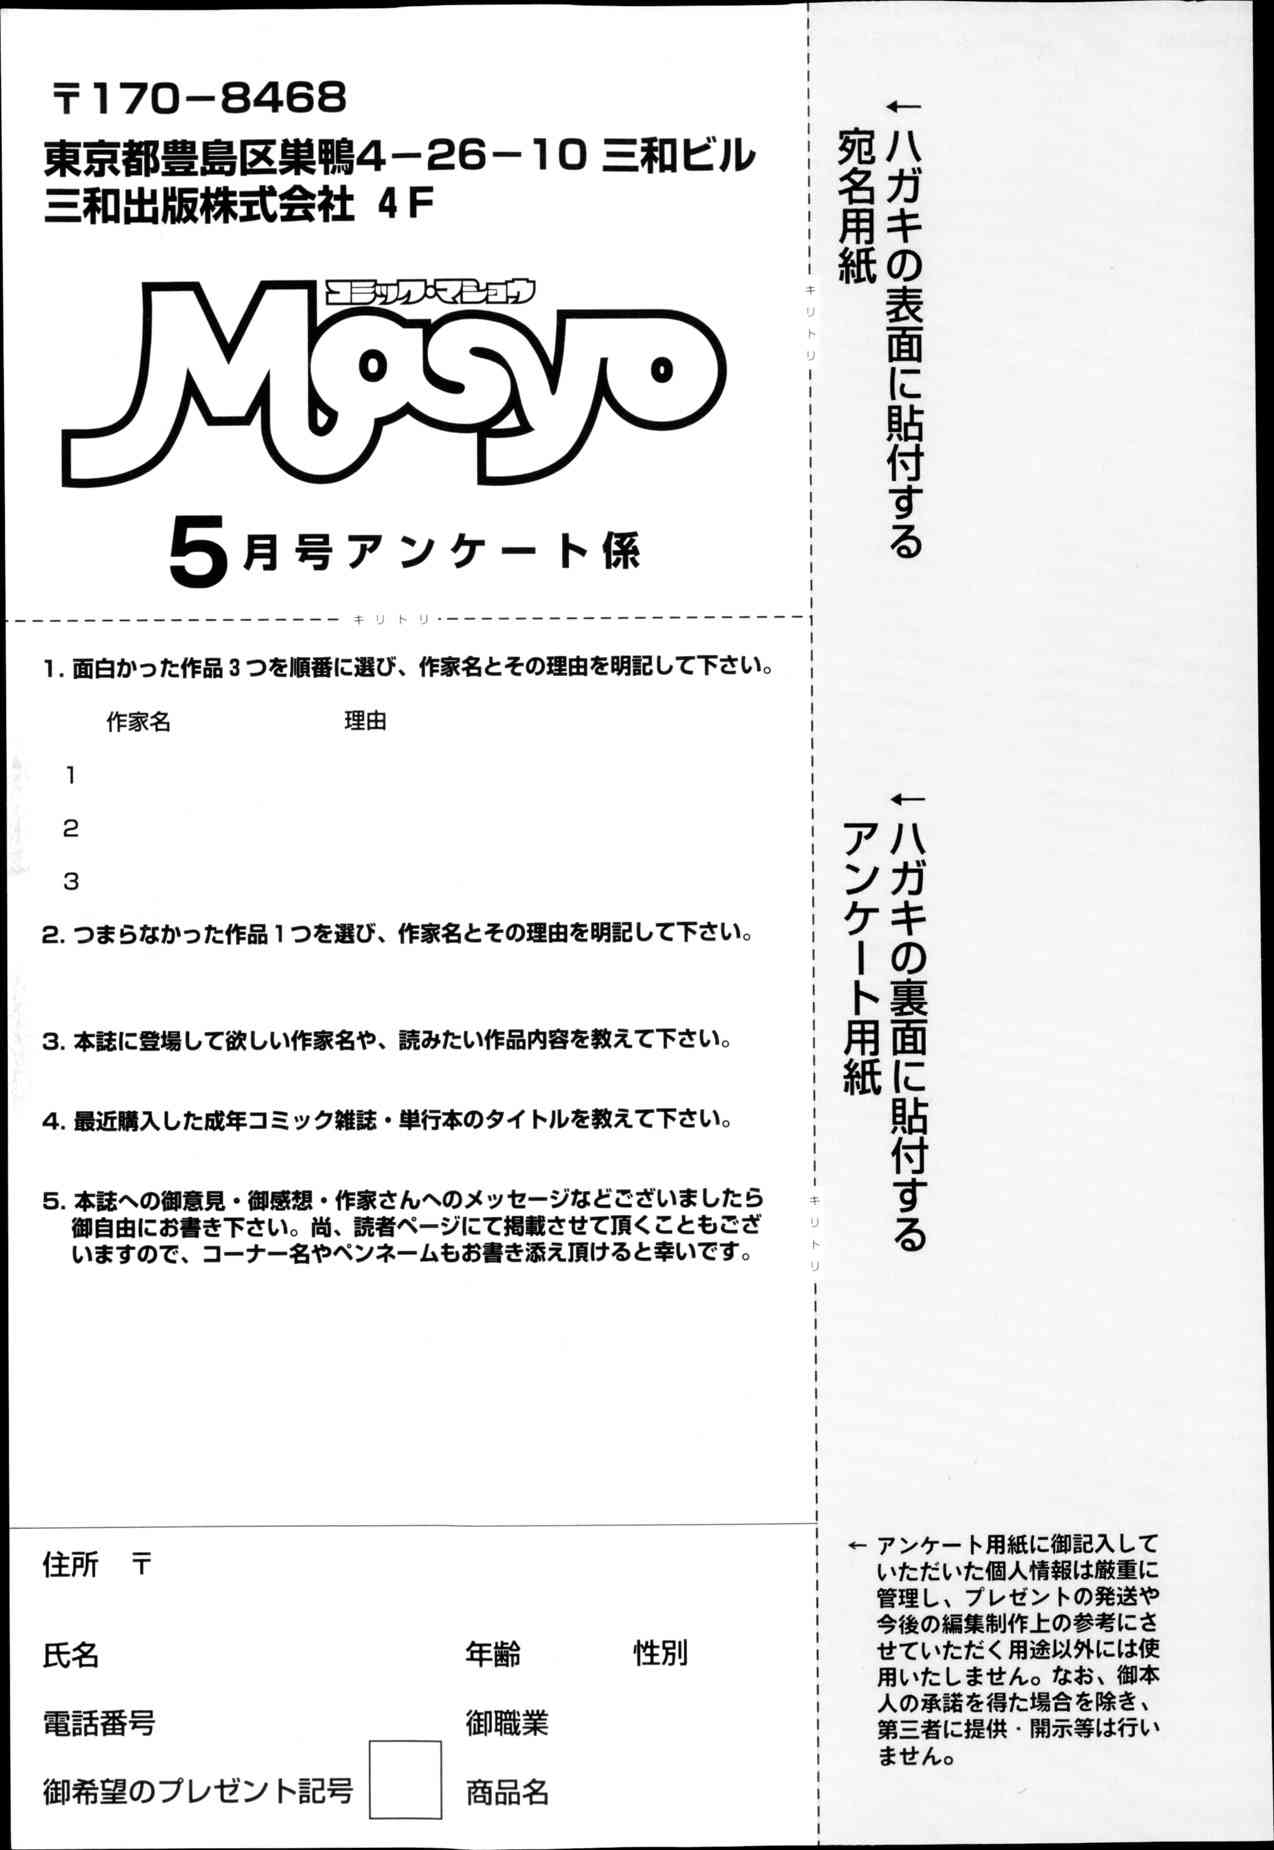 〒170－8468
東京都豊島区巣鴨4－26－10 三和ビル
三和出版株式会社 4F
コミック・マショウ
Masyo
5月号アンケート係
キリトリ
1. 面白かった作品3つを順番に選び、作家名とその理由を明記して下さい。
作家名 理由
1
2
3
2. つまらなかった作品1つを選び、作家名とその理由を明記して下さい。
3. 本誌に登場して欲しい作家名や、読みたい作品内容を教えて下さい。
4. 最近購入した成年コミック雑誌・単行本のタイトルを教えて下さい。
5. 本誌への御意見・御感想・作家さんへのメッセージなどございましたら
御自由にお書き下さい。尚、読者ページにて掲載させて頂くこともござ
いますので、コーナー名やペンネームもお書き添え頂けると幸いです。
住所 〒
氏名 年齢 性別
電話番号 御職業
御希望のプレゼント記号 商品名
キリトリ
←ハガキの表面に貼付する
宛名用紙
←ハガキの裏面に貼付する
アンケート用紙
キリトリ
← アンケート用紙に御記入して
いただいた個人情報は厳重に
管理し、プレゼントの発送や
今後の編集制作上の参考にさ
せていただく用途以外には使
用いたしません。なお、御本
人の承諾を得た場合を除き、
第三者に提供・開示等は行い
ません。